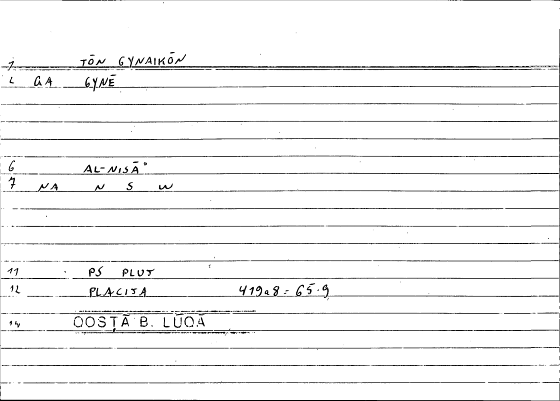 1 TŌN GYNAIKŌN
2 GA GYNĒ
6 AL-NISĀʾ
7 NA N S W
11 PS PLUT
12 PLACITA 419a8 = 65.9
14 QOSṬĀ B. LŪQĀ